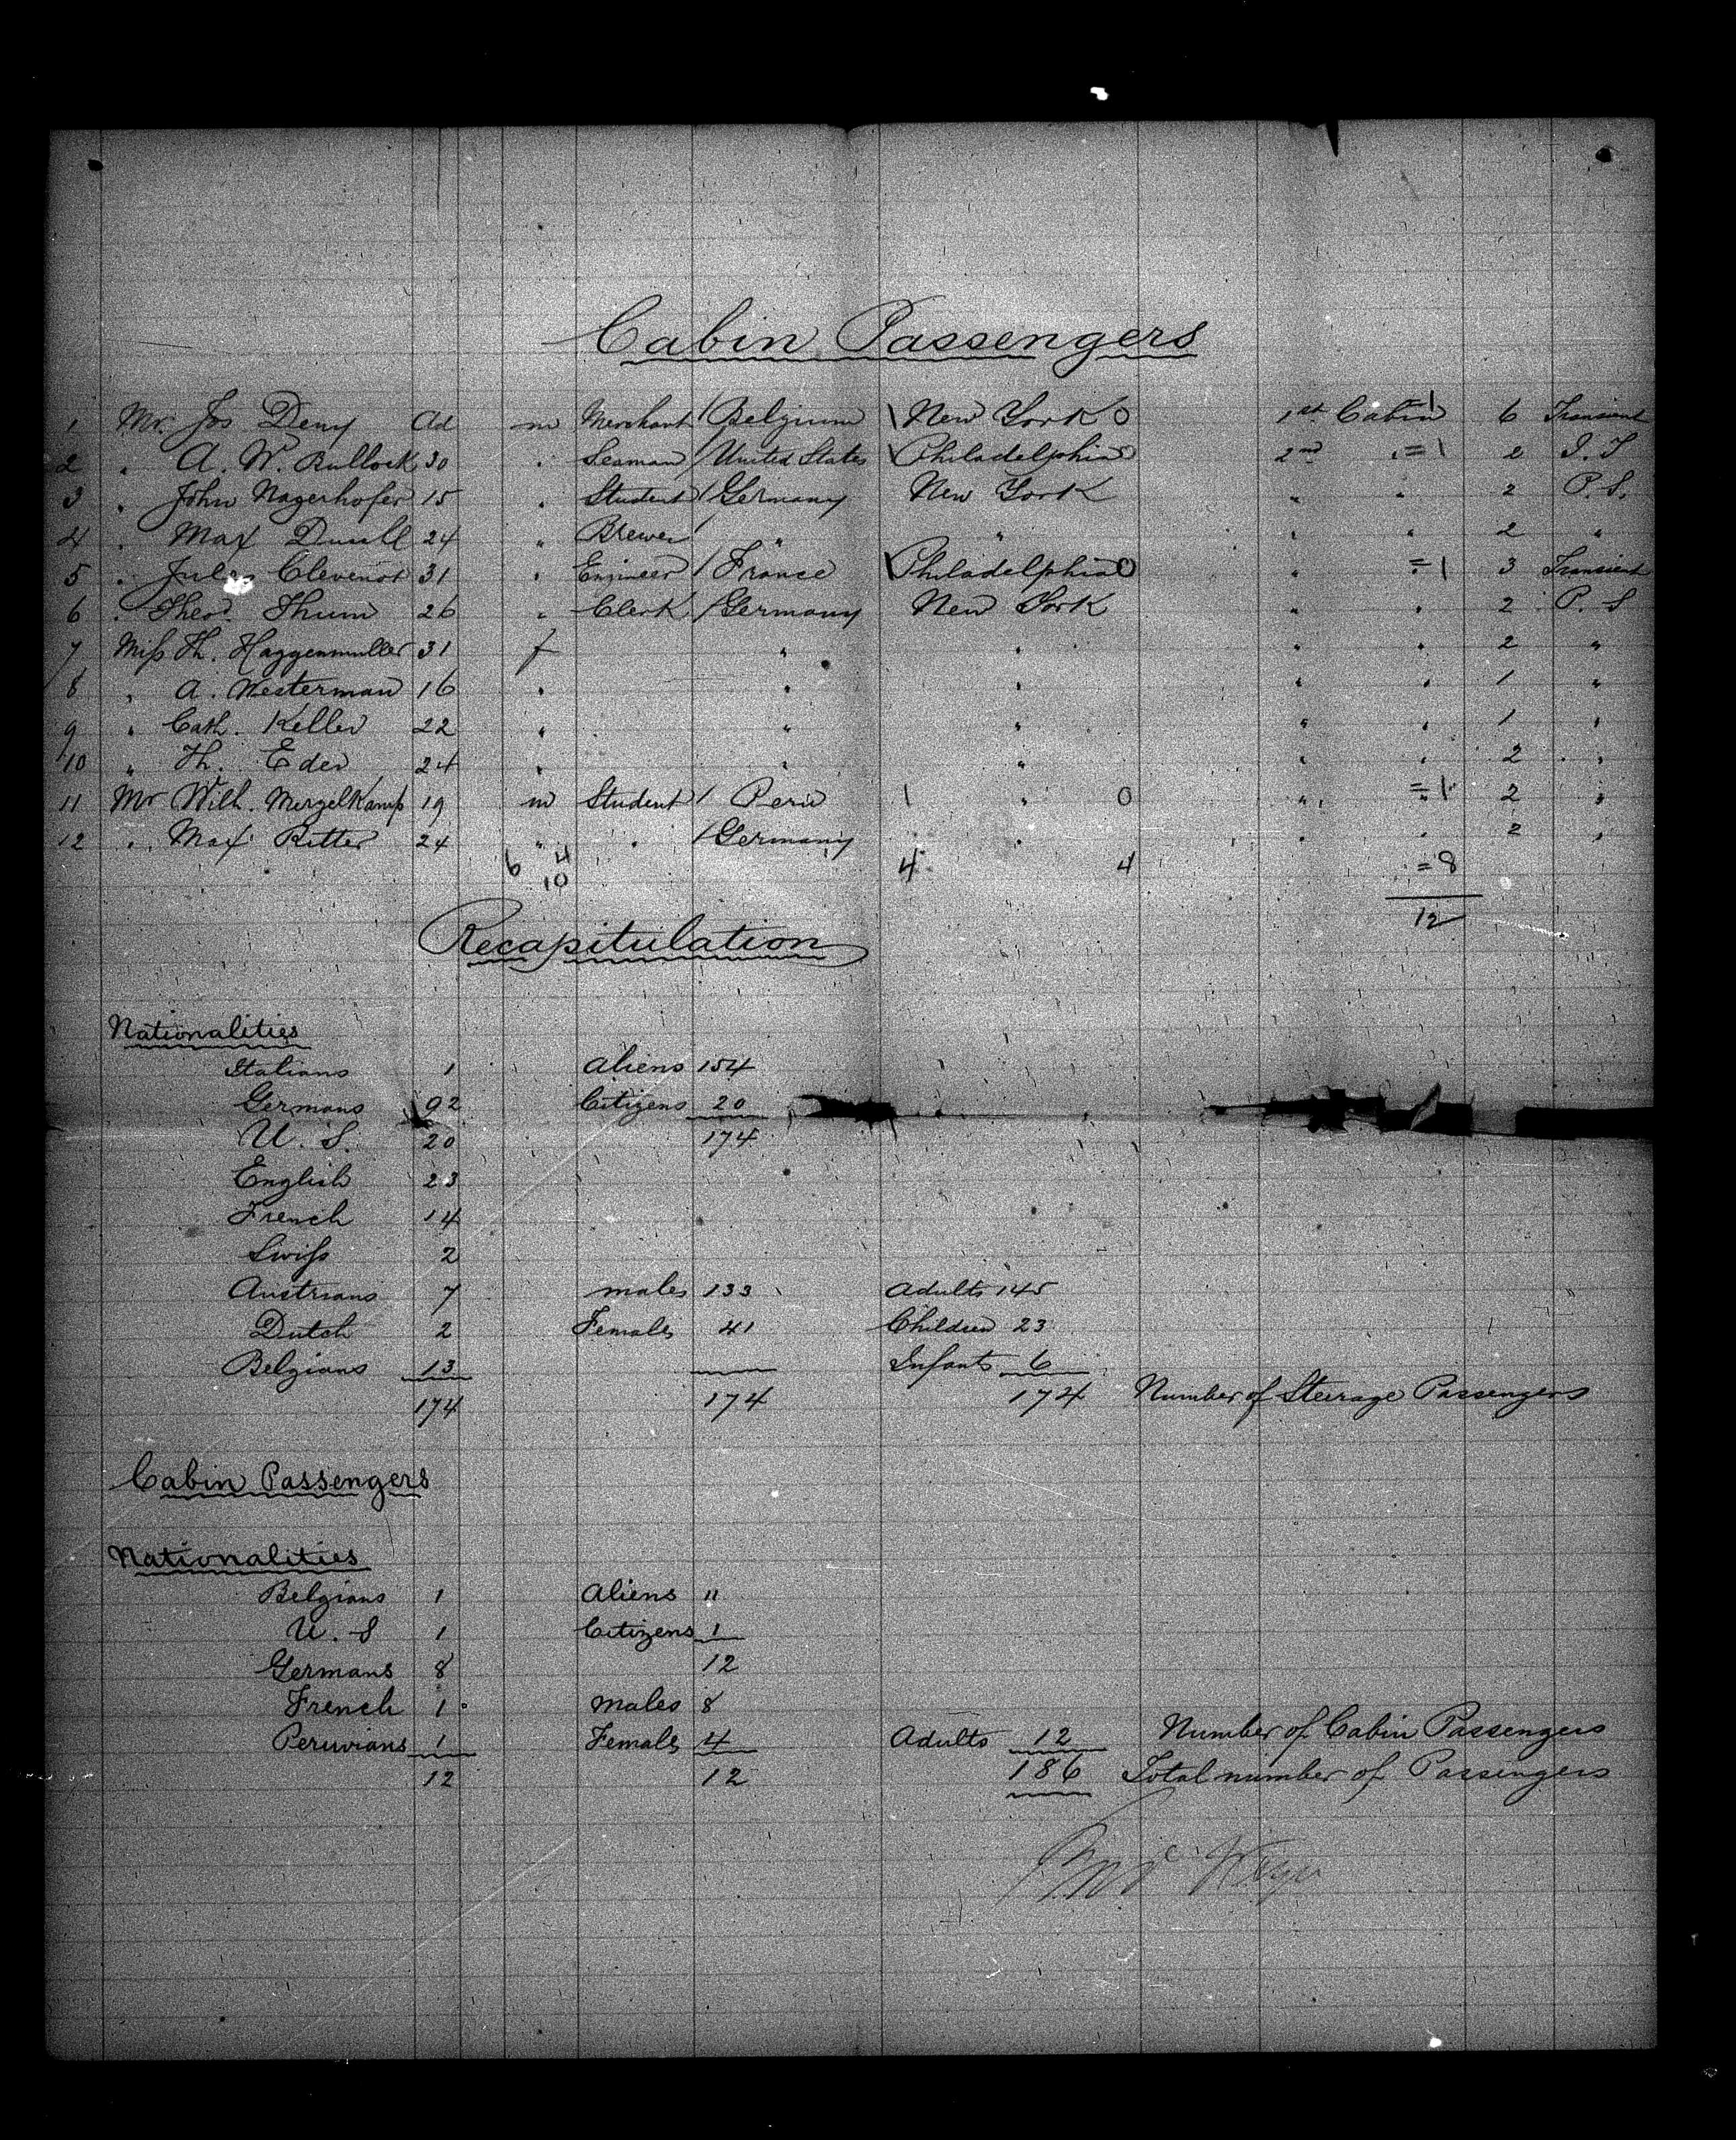 Cabin Passengers
1 Mr. Jos Deny Ad m Merchant / Belgium \ New York 0 1st Cabin =1 6 Transient
2 " A. W. Bullock 30 " Seaman / United States \ Philadelphia 0 2nd " =1 2 I. T
3 " John Nagerhofer 15 " Student / Germany New York " " 2 P. S.
4 " Max Dusell 24 " Brewer " " " " 2 "
5 " Jules Clevenot 31 " Engineer / France \ Philadelphia 0 " =1 3 Transient
6 " Theod. Thum 26 " Clerk / Germany New York " " 2 P. S
7 Miss Th. Haggenmuller 31 f " " " " 2 "
8 " A. Westerman 16 " " " " " 1 "
9 " Cath. Keller 22 " " " " " 1 "
10 " Th. Eder 24 " " " " " 2 "
11 Mr Wilh. Mergelkamp 19 m Student / Peru \ " 0 " =1 2 "
12 " Max Ritter 24 " " / Germany " " " 2 "
6 4 4 4 =8
10
12
Recapitulation
Nationalities
Italians 1 Aliens 154
Germans 92 Citizens 20
U. S. 20 174
English 23
French 14
Swiss 2
Austrians 7 Males 133 Adults 145
Dutch 2 Females 41 Children 23
Belgians 13 Infants 6
174 174 174 Number of Steerage Passengers
Cabin Passengers
Nationalities
Belgians 1 Aliens 11
U. S 1 Citizens 1
Germans 8 12
French 1 Males 8
Peruvians 1 Females 4 Adults 12 Number of Cabin Passengers
12 12 186 Total number of Passengers